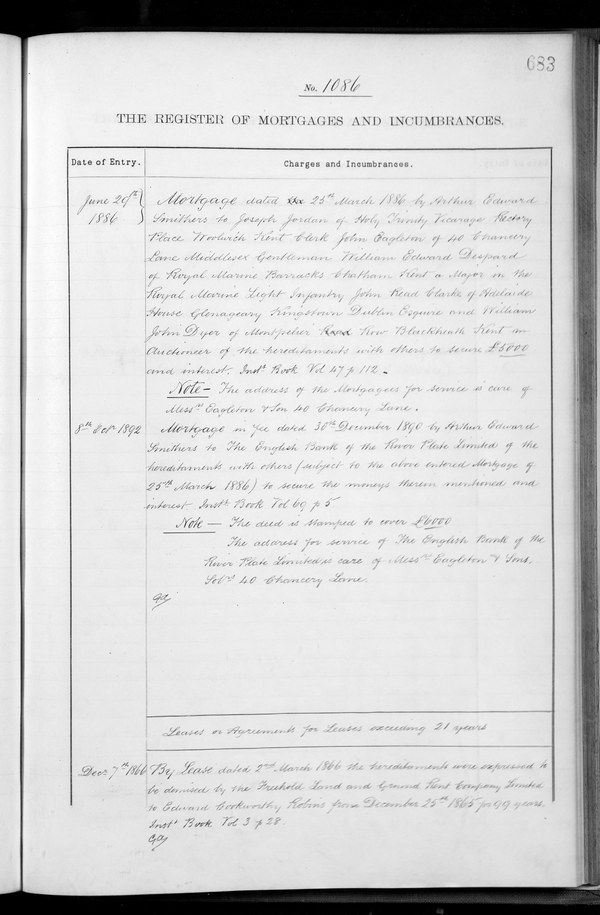 683
No. 1086
THE REGISTER OF MORTGAGES AND INCUMBRANCES.
Date of Entry.
Charges and Incumbrances.
June 29th 1886
Mortgage dated 25th March 1886 by Arthur Edward
Smithers to Joseph Jordan of Holy Trinity Vicarage Rectory
Place Woolwich Kent Clerk John Eagleton of 40 Chancery
Lane Middlesex Gentleman William Edward Despard
of Royal Marine Barracks Chatham Kent a Major in the
Royal Marine Light Infantry John Read Clarke of Adelaide
House Glenageary Kingstown Dublin Esquire and William
John Dyer of Montpelier Road Row Blackheath Kent an
Auctioneer of the hereditaments with others to secure £5000
and interest. Instt Book Vol 47 p 112.
Note – The address of the Mortgagees for service is care of
Messrs Eagleton & Son 40 Chancery Lane.
8th Octr 1892
Mortgage in fee dated 30th December 1890 by Arthur Edward
Smithers to The English Bank of the River Plate Limited of the
hereditaments with others (subject to the above entered Mortgage of
25th March 1886) to secure the moneys therein mentioned and
interest. Instt Book Vol 69 p 5
Note — The deed is stamped to cover £6000
The address for service of The English Bank of the
River Plate Limited is care of Messrs Eagleton & Sons,
Solrs 40 Chancery Lane.
Leases or Agreements for Leases exceeding 21 years
Decr 7th 1866
By Lease dated 2nd March 1866 the hereditaments were expressed to
be demised by the Freehold Land and Ground Rent Company Limited
to Edward Cookworthy Robins from December 25th 1865 for 99 years.
Instt Book Vol 3 p 28